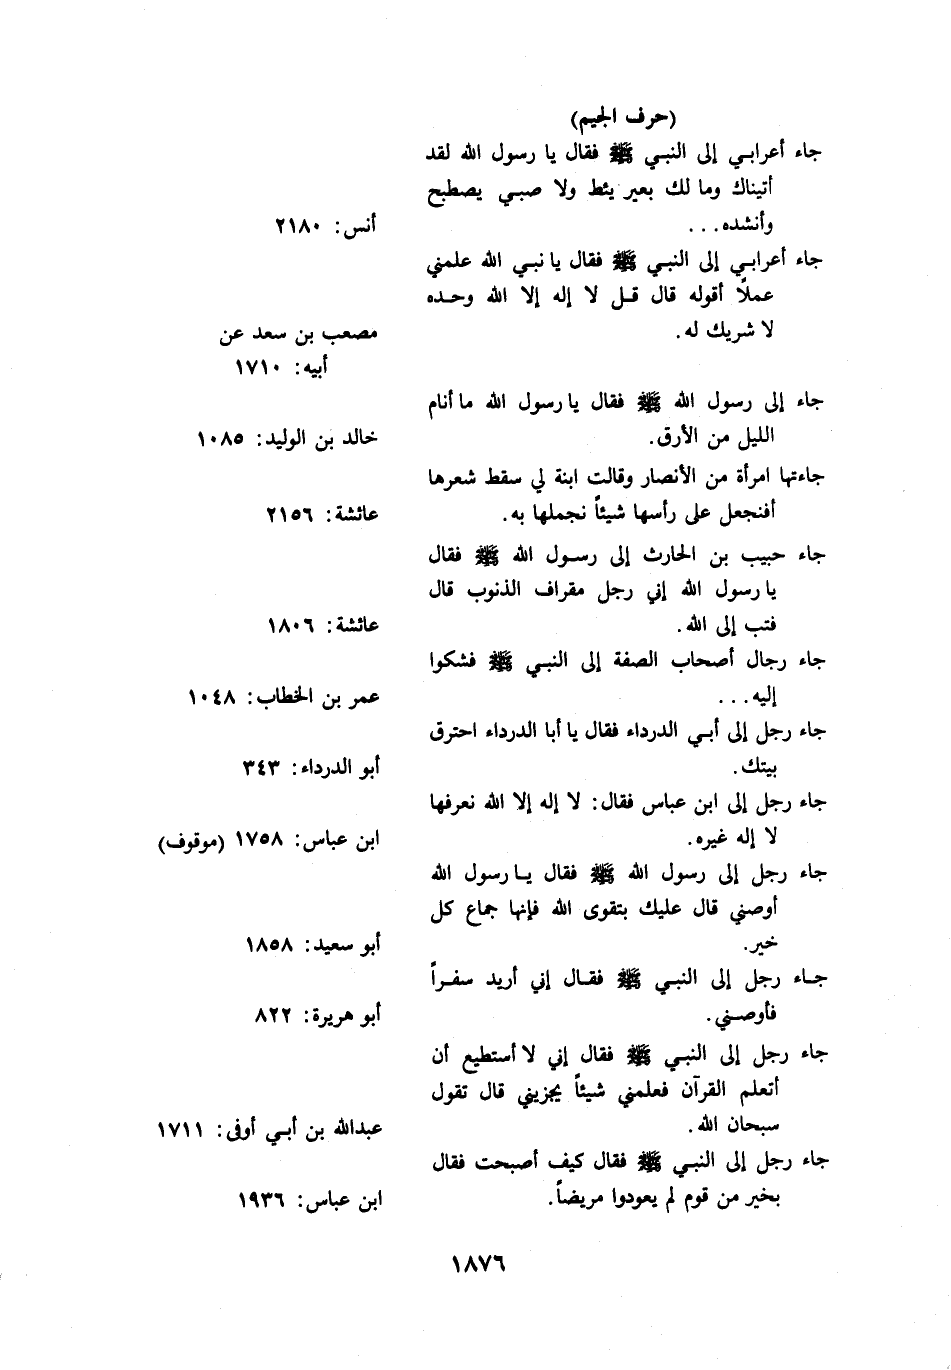 (حرف الجيم)
جاء أعرابي إلى النبي ﷺ فقال يا رسول الله لقد
أتيناك وما لك بعير يئط ولا صبي يصطبح
وأنشده... أنس: ٢١٨٠
جاء أعرابي إلى النبي ﷺ فقال يا نبي الله علمني
عملاً أقوله قال قل لا إله إلا الله وحده
لا شريك له. مصعب بن سعد عن
أبيه: ١٧١٠
جاء إلى رسول الله ﷺ فقال يا رسول الله ما أنام
الليل من الأرق. خالد بن الوليد: ١٠٨٥
جاءتها امرأة من الأنصار وقالت ابنة لي سقط شعرها
أفنجعل على رأسها شيئاً نجملها به. عائشة: ٢١٥٦
جاء حبيب بن الحارث إلى رسول الله ﷺ فقال
يا رسول الله إني رجل مقراف الذنوب قال
فتب إلى الله. عائشة: ١٨٠٦
جاء رجال أصحاب الصفة إلى النبي ﷺ فشكوا
إليه... عمر بن الخطاب: ١٠٤٨
جاء رجل إلى أبي الدرداء فقال يا أبا الدرداء احترق
بيتك. أبو الدرداء: ٣٤٣
جاء رجل إلى ابن عباس فقال: لا إله إلا الله نعرفها
لا إله غيره. ابن عباس: ١٧٥٨ (موقوف)
جاء رجل إلى رسول الله ﷺ فقال يا رسول الله
أوصني قال عليك بتقوى الله فإنها جماع كل
خير. أبو سعيد: ١٨٥٨
جاء رجل إلى النبي ﷺ فقال إني أريد سفراً
فأوصني. أبو هريرة: ٨٢٢
جاء رجل إلى النبي ﷺ فقال إني لا أستطيع أن
أتعلم القرآن فعلمني شيئاً يجزيني قال تقول
سبحان الله. عبدالله بن أبي أوفى: ١٧١١
جاء رجل إلى النبي ﷺ فقال كيف أصبحت فقال
بخير من قوم لم يعودوا مريضاً. ابن عباس: ١٩٣٦
١٨٧٦